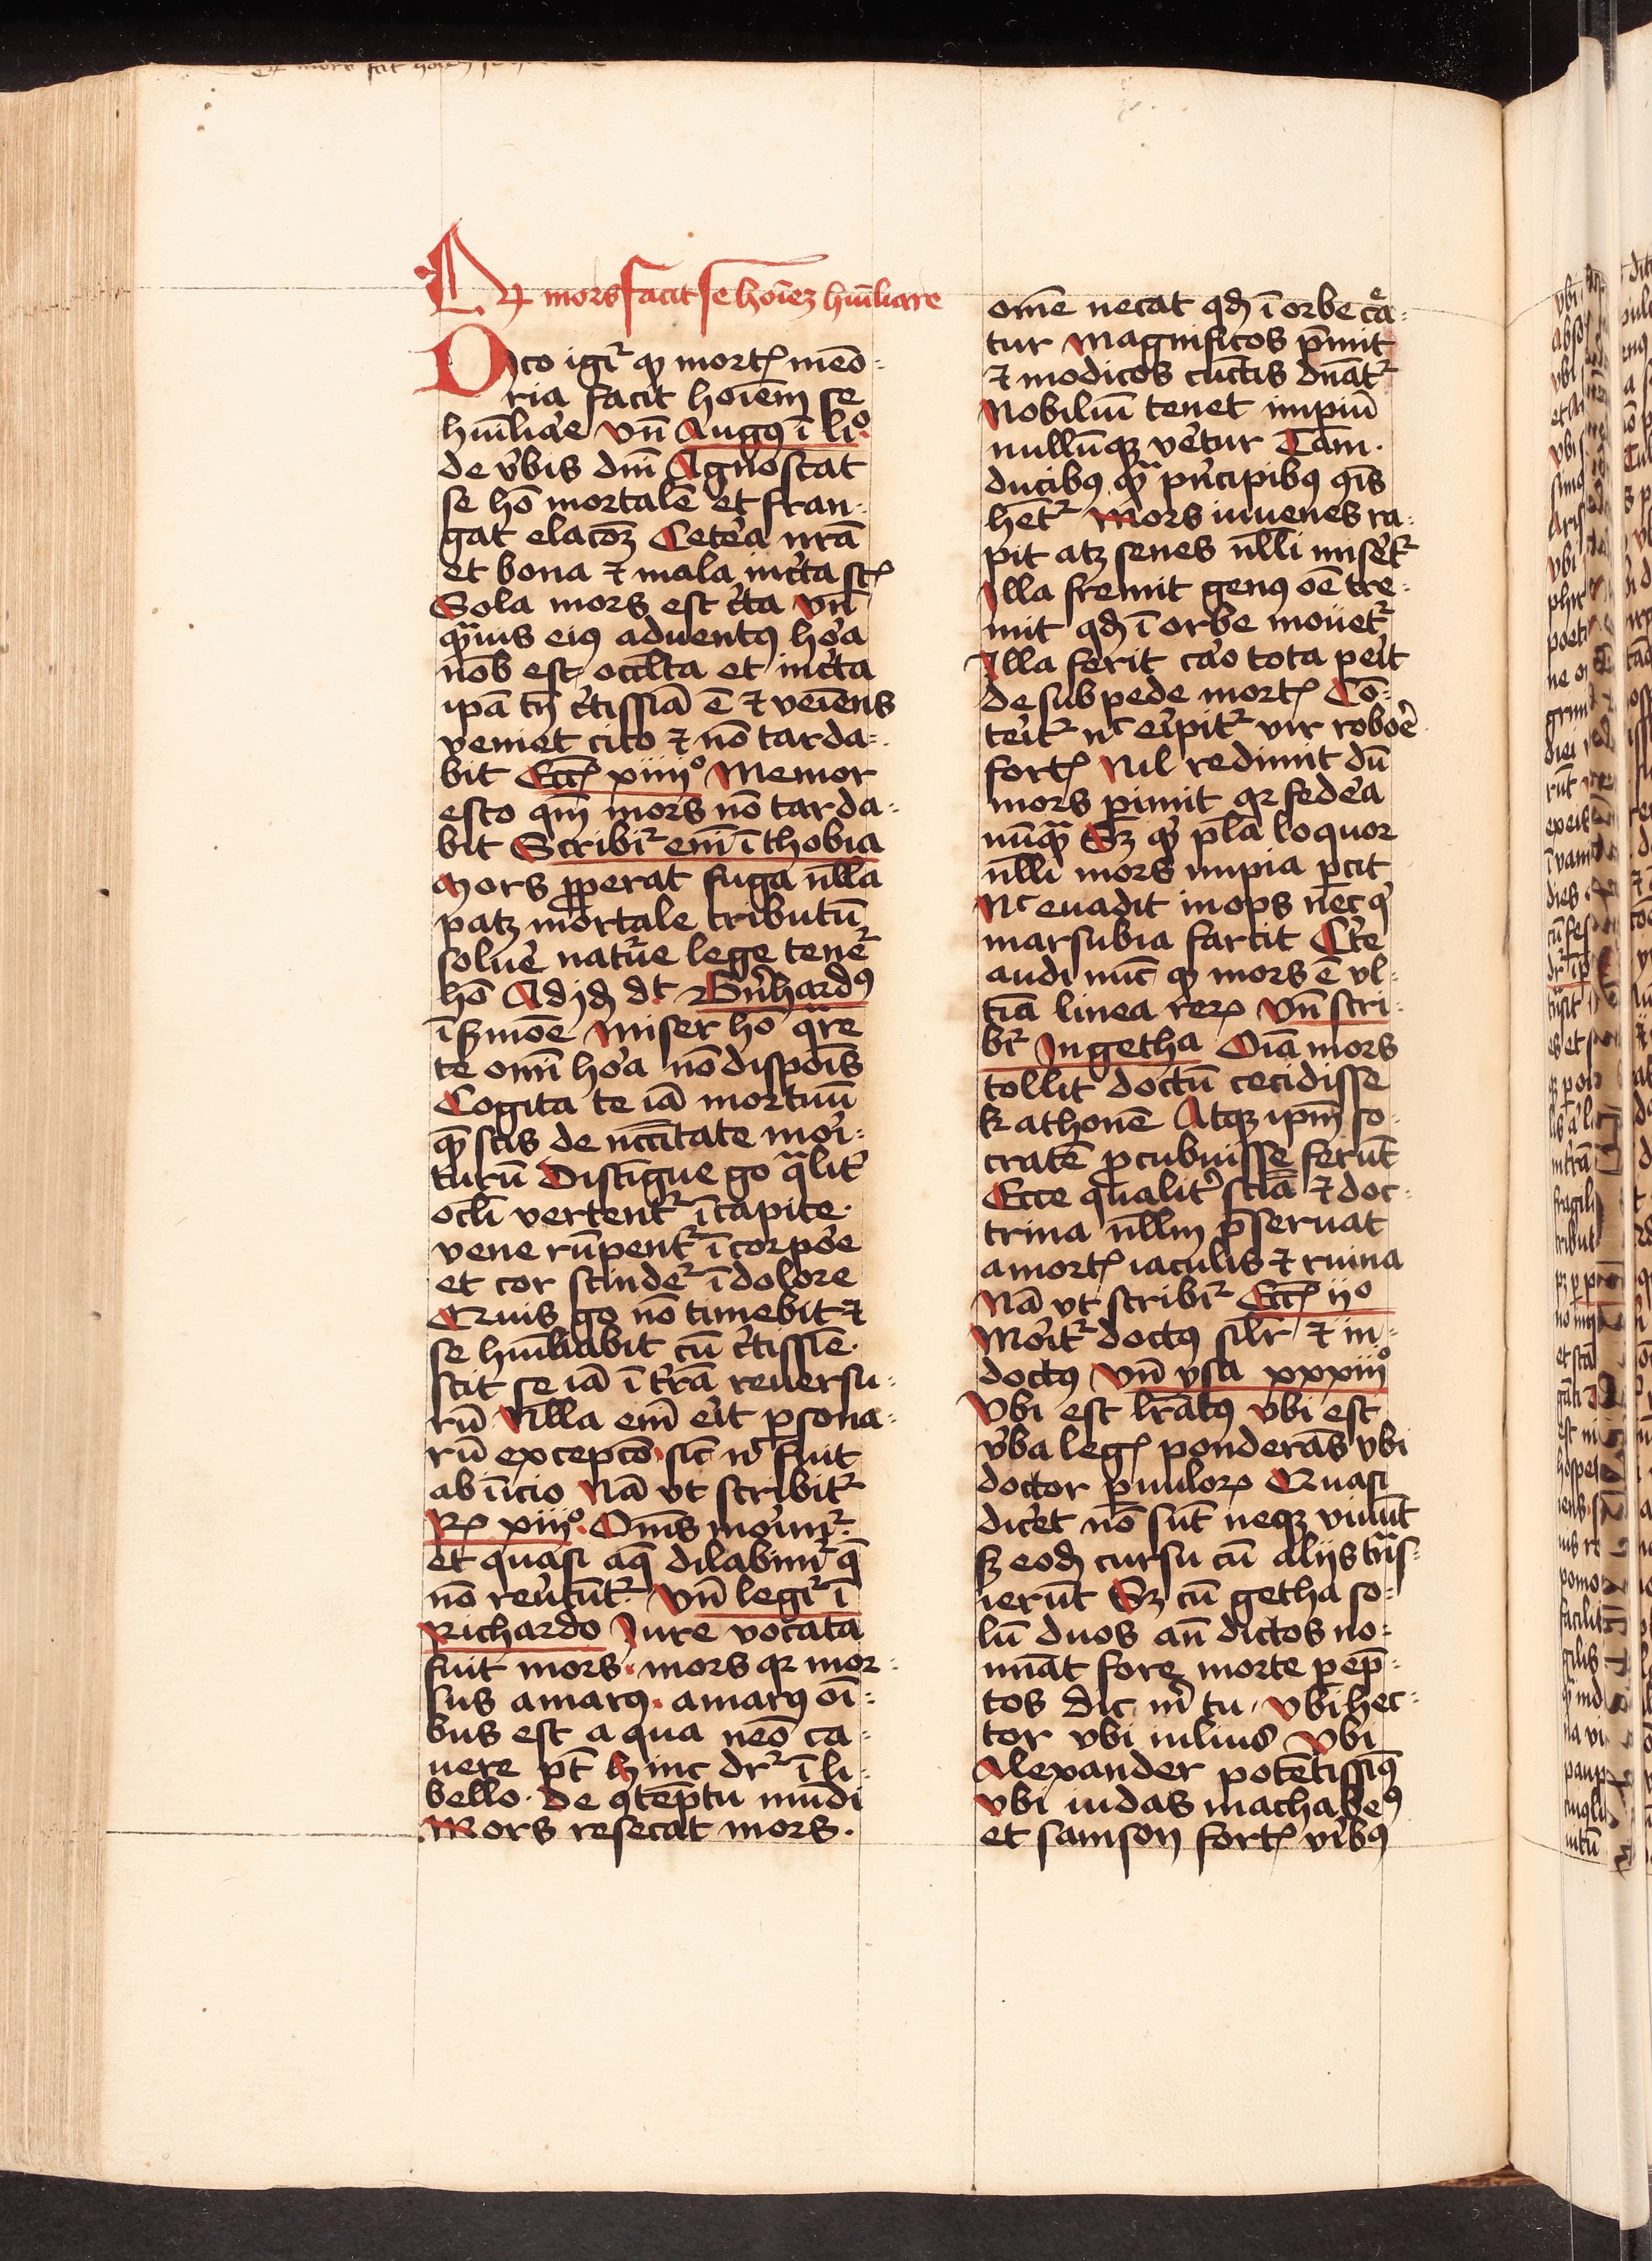 Qꝛ mors facit se hoīeꝫ hūīliare
Dico igiᷣ ꝙ mortꝭ meō⸗
ria facit hoīem se
hūīlia͛e vn̄ Augꝰ ī liº
de v͛bis dn̄i Agnoscat
se hō mortalē et fran⸗
gat elacōꝫ Cete͛a nr̄a
et bona ⁊ mala inc͛ta st̄ꝭ
Sola mors est c͛ta vn̄
qᷓuis eiꝰ aduentꝰ ho͛a
nob̄ est occl̄ta et inc͛ta
ip̄a tn̄ c͛tissīa ē ⁊ veīens
veniet cito ⁊ nō tarda⸗
bit Ecc̄ꝭ xiiiiº Memor
esto qm̄ mors nō tarda⸗
bit Scribiᷣ em̄ ī thobia
Mors ꝓperat fuga nl̄la
patꝫ mortale tributū
solue͛ natu͛e lege teneᷣ
hō Ad jd dt Bn͛hardꝰ
ī s͛moē Miser hō qᷓre
te omī ho͛a nō dispoīs
Cogita te iā mortuū
qᷓ scis de nccītate moi͛⸗
turū Distīgue go qᷓlit͛
ocl̄i vertentᷣ ī capite⸗
vene rūpentᷣ ī corpo͛e
et cor scindeᷣ ī dolore
Quis go nō timebit ⁊
se hūīliabit cū c͛tissīe⸗
scit se iā ī t͛rā reuersu⸗
rū Nl̄la em̄ ei͛t ꝑsona⸗
rū excepcō sic nᶜ fuit
ab īicio Nā vt scribitᷣ
Rꝭ xiiiiº Om̄s moi͛mᷣ
et quasi aq̄ dilabimᷣ q̄
nō reu͛tūtᷣ Vn̄ legiᷣ ī
Richardo Jure vocata
fuit mors mors qꝛ mor⸗
sus amarꝰ amarꝰ oī⸗
bus est a qua neō ca⸗
uere pt̄ hinc drᷣ ī li⸗
bello de ꝯtēptu mūdi
Mors resecat mors
omē necat qd̄ ī orbe cͤa⸗
tur Magnificos p̄mit
⁊ modicos cūctis dn̄atᷣ
Nobiliū tenet impiū
nullūqꝫ ve͛tur Tam
ducibꝰ qᷓ pn͛cipibꝰ ꝯīs
hētᷣ Mors iuuenes ra⸗
pit atꝫ senes nl̄li mise͛tᷣ
Illa fremit genꝰ oē tre⸗
mit qd̄ ī orbe mouetᷣ
Illa ferit ca͛o tota pei͛t
de sub pede mortꝭ Cō⸗
tei͛tᷣ nᶜ ei͛pitᷣ vir roboe͛
fortꝭ Nil redimit dū
mors ꝑimit qꝛ fede͛a
nūqᷓ Sꝫ qͥ pl̄a loquor
nl̄li mors impia ꝑcit
Nᶜ euadit inops nec qͥ
marsubia farcit C͛te
audi nūc ꝙ mors ē vl⸗
tīa linea reꝝ Vn̄ scri⸗
bᷣ In getha Oīa mors
tollit doctū cecidisse
kathonē Atqꝫ ip̄m so⸗
cratē ꝓcubuisse ferūt
Ecce qualit͛ sciā ⁊ doc⸗
trina nl̄lm p̄seruat
a mortꝭ iaculis ⁊ ruina
Nā vt scribiᷣ Ecc̄ꝭ iiº
Moi͛tᷣ doctꝰ silr̄ ⁊ in⸗
doctꝰ Vn̄ ysa xxxiiiº
Vbi est lr̄atꝰ vbi est
v͛ba legꝭ ponderās vbi
doctor ꝑuuloꝝ Quasi
dice͛t nō sūt neqꝫ viuūt
sꝫ eod̄ cursu cū alijs tᷓns⸗
ierūt Sꝫ cū getha so⸗
lū duos an̄ dictos no⸗
mīat fore morte ꝑēp⸗
tos dic m͛ tu vbi hec⸗
tor vbi iulius vbi
Alexander potētissiqͥ
Vbi iudas machabeꝰ
et samson fortꝭ vi͛bꝰ